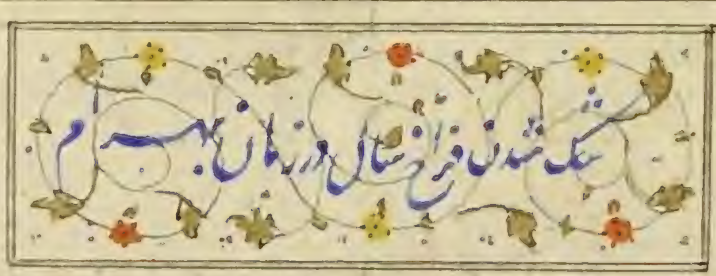 تنگ شدن فراخ سال در زمان بهرام